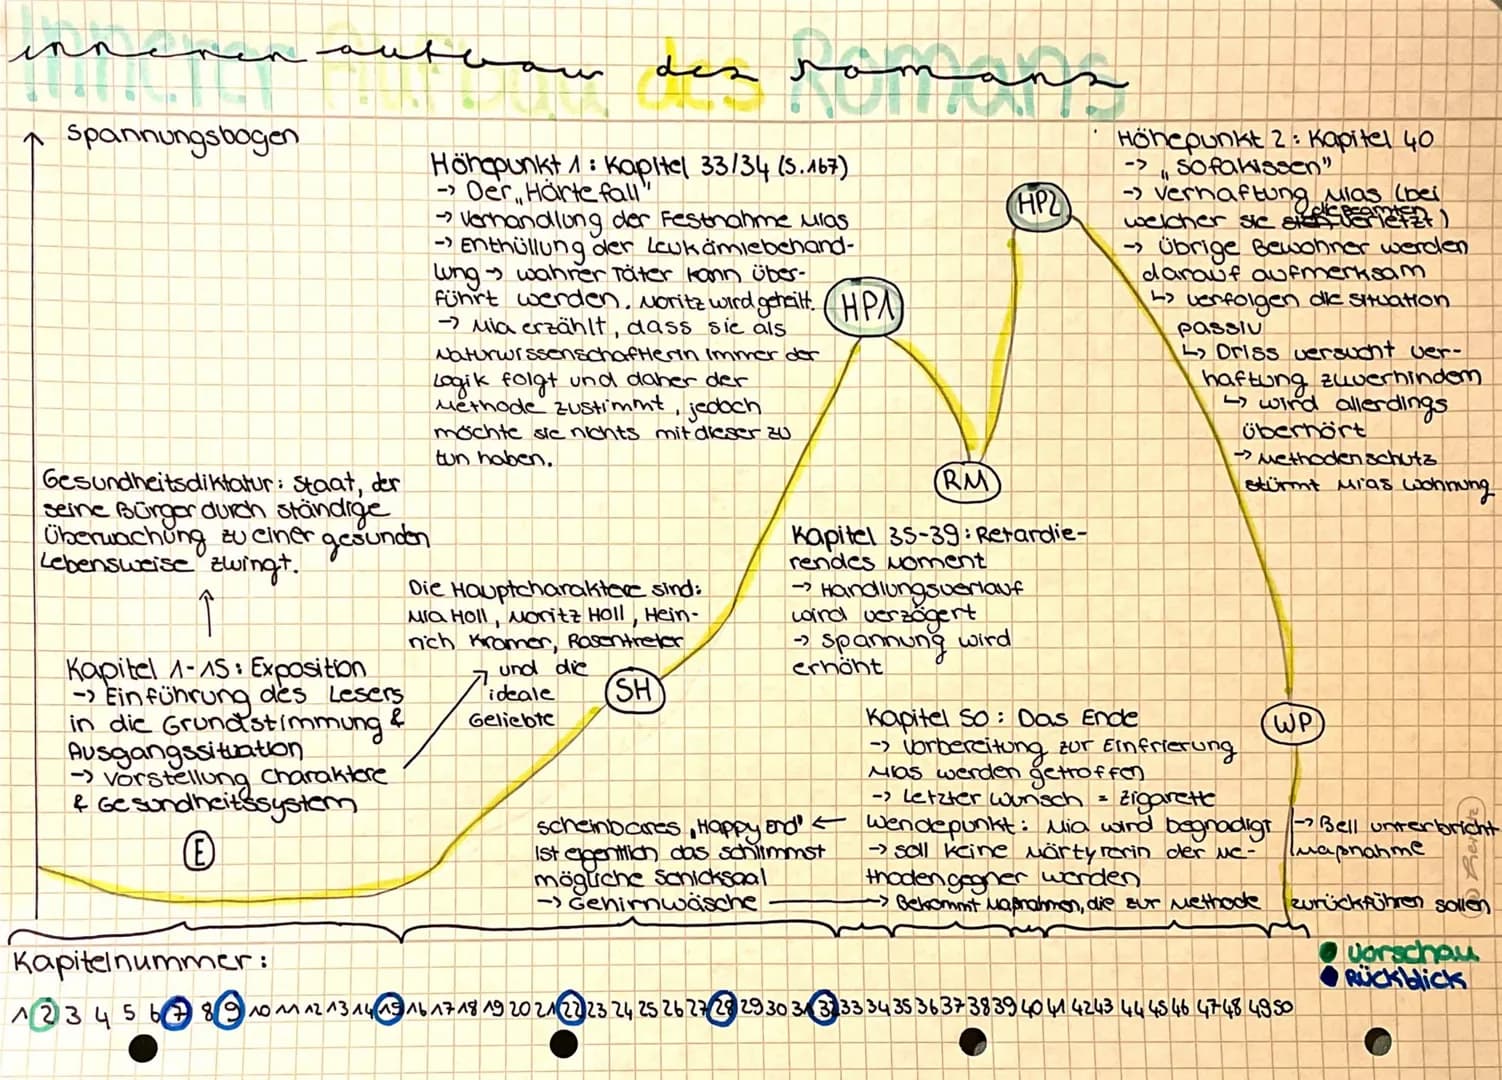 innerer aufbau des romans
Spannungsbogen
Höhepunkt 1: Kapitel 33/34 (S.167)
-> Der „Härtefall"
-> Verhandlung der Festnahme Mias
-> Enthüllung der Leukämiebehand-
lung -> wahrer Täter kann über-
führt werden. Moritz wird geheilt.
-> Mia erzählt, dass sie als
Naturwissenschaftlerin immer der
Logik folgt und daher der
Methode zustimmt, jedoch
möchte sie nichts mit dieser zu
tun haben.
HP1
HP2
RM
Höhepunkt 2: Kapitel 40
-> „Sofakissen"
-> Verhaftung Mias (bei
welcher sie die Beamten verletzt)
-> Übrige Bewohner werden
darauf aufmerksam
↳ verfolgen die Situation
passiv
↳ Driss versucht Ver-
haftung zuverhindern
↳ wird allerdings
überhört
-> Methodenschutz
stürmt Mias Wohnung
Gesundheitsdiktatur: Staat, der
seine Bürger durch ständige
Überwachung zu einer gesunden
Lebensweise zwingt.
Kapitel 1-15: Exposition
-> Einführung des Lesers
in die Grundstimmung &
Ausgangssituation
-> Vorstellung Charaktere
& Gesundheitssystem
E
Die Hauptcharaktere sind:
Mia Holl, Moritz Holl, Hein-
rich Kramer, Rosentreter
und die
ideale
Geliebte
SH
Kapitel 35-39: Retardie-
rendes Moment
-> Handlungsverlauf
wird verzögert
-> Spannung wird
erhöht
WP
Kapitel 50: Das Ende
-> Vorbereitung zur Einfrierung
Mias werden getroffen
-> Letzter Wunsch = Zigarette
Wendepunkt: Mia wird begnadigt
-> soll keine Märtyrerin der Me-
thodengegner werden
-> Bekommt Maßnahmen, die zur Methode zurückführen sollen
-> Bell unterbricht
Maßnahme
scheinbares „Happy End" ←
ist eigentlich das schlimmst
mögliche Schicksaal
-> Gehirnwäsche
Kapitelnummer:
Vorschau
Rückblick
1 2 3 4 5 6 7 8 9 10 11 12 13 14 15 16 17 18 19 20 21 22 23 24 25 26 27 28 29 30 31 32 33 34 35 36 37 38 39 40 41 42 43 44 45 46 47 48 49 50